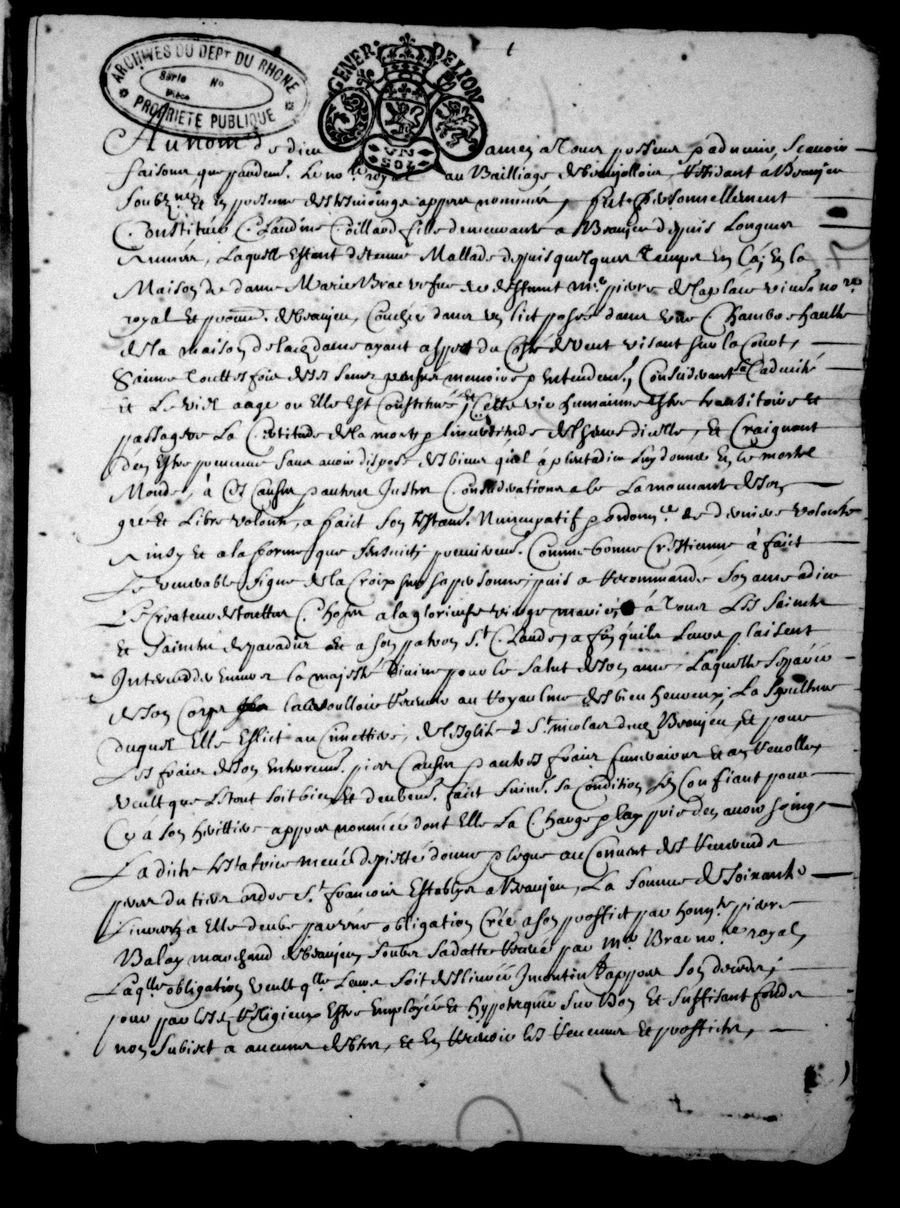 ARCHIVES DU DEPT DU RHONE
Série No
Pièce
PROPRIETE PUBLIQUE
GENER. DE LION
UN SOL
Au nom de dieu amen a tous presens & advenir, scavoir
faisons que pardevt. Le nore. royal au Bailliage de beaujollois, Residant a Beaujeu
soubzne. et en presence des tesmoings appres nommés, fut personnellement
Constituée Claudine fille demeurante a Beaujeu depuis Longues
Années, Laquelle estant detenue Mallade depuis quelques temps En Ca, En la
Maison de dame Marie Brac vefve de deffunt me. pierre de Laplace vivant nore.
royal et procur. de beaujeu, Couchée dans un lict posé dans une Chambre haulte
de la maison de lad. dame ayant aspect du Costé de vent visant sur la Court,
Saine touttesfois de ses sens memoire & Entendemt, Considerant la Caducité
et Le viel aage ou Elle Est Constituée, et Cette vie humaine Estre transitoire et
passagere La Certitude de la mort & lincertitude de lheure dicelle, et Craignant
den Estre prevenue sans avoir disposé des biens quil a pleu a dieu luy donner En ce mortel
Monde, à Ces Causes & autres Justes Considerations a ce La mouvante de son
gré et Libre volonté, a faict son testamt. Nuncupatif & ordonnce. de derniere volonté
Ainsy et a la forme que sensuict, premieremt. Comme bonne Crestienne à faict
Le venerable signe de la Croix sur sa personne, puis a recommandé son ame a dieu
Le Createur de touttes Choses a la glorieuse vierge marie, à tous Les Saincts
et Sainctes de paradis et a son patron St. Claude, a fin quils Leurs plaisent
Interceder Envers la majesté divine pour le salut de son ame, Laquelle separée
de son Corps la voulloir recevoir au royaulme des bien heureux, La sepulture
duquel Elle Eslict au Cimettiere de leglise de St. nicolas dud. Beaujeu, et pour
Les frais de son Enterremt. & autres frais funeraires et
veult que Letout soit bien et deubemt. faict suivt. sa Condition sen Confiant pour
Ce à son heritiere appres nommée dont Elle La Charge & La prie den avoir soing
Ladicte testatrice meüe de pieté, donne & legue au Couvent des Reverends
peres du tiers ordre St. francois Establys a Beaujeu, La somme de soixante
Livres a Elle deube par une obligation Crée a son proffict par honte. pierre
Balay marchand de beaujeu soubz sa datte receüe par me. Brac nore. royal,
Laqlle obligation veult qlle Leur soit deslivrée Incontinent appres son deceds,
pour par lesd. Religieux Estre Employée et Hypotequée sur bon et suffisant fonds
non subiect a aucunes debtes, et En recevoir les revenus et profficts,